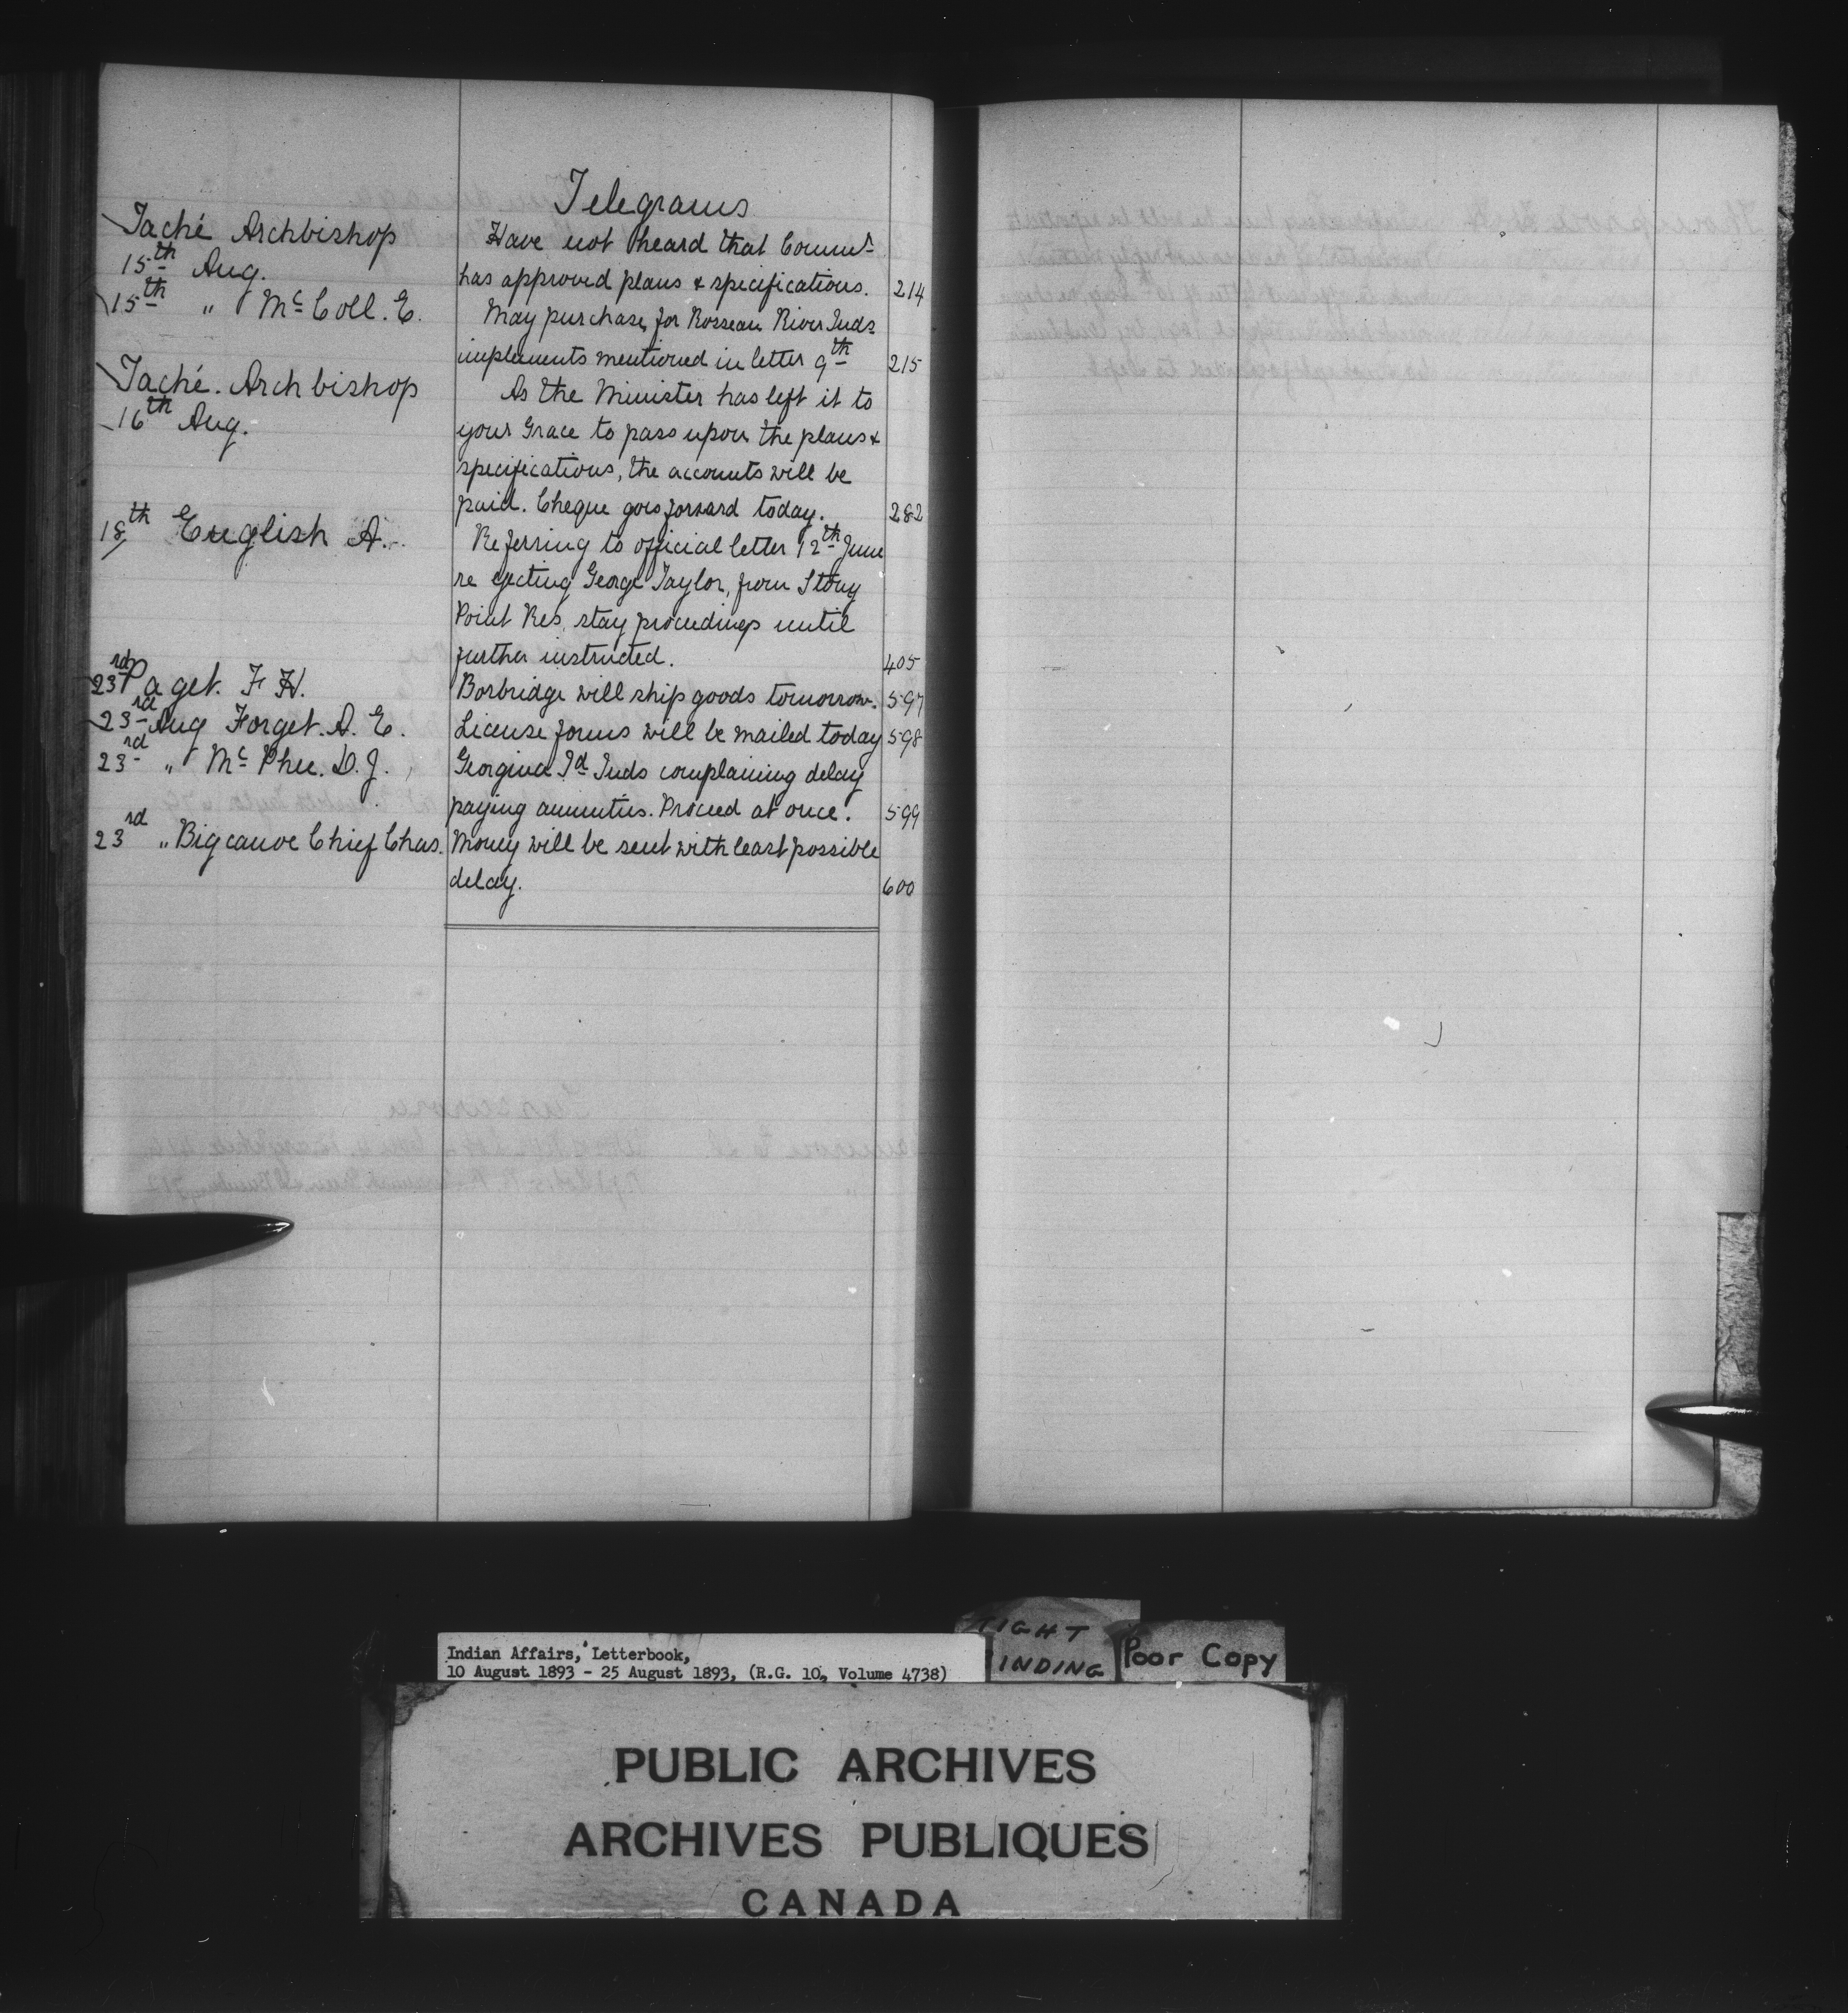 Telegrams
Taché Archbishop Have not heard that Commr
15th Aug. has approved plans & specifications. 214
15th " McColl. E. May purchase for Rosseau River Inds
implements mentioned in letter 9th 215
Taché. Archbishop As the Minister has left it to
16th Aug. your Grace to pass upon the plans &
specifications, the accounts will be
paid. Cheque goes forward today. 282
18th English A. Referring to official letter 12th June
re ejecting George Taylor, from Stony
Point Res, stay proceedings until
further instructed. 405
23rd Paget. F H. Borbridge will ship goods tomorrow. 597
23rd Aug Forget. A. E. License forms will be mailed today 598
23rd " McPhee. D. J. Georgina Id Inds complaining delay
paying annuities. Proceed at once. 599
23rd " Bigcanoe Chief Chas. Money will be sent with least possible
delay. 600
TIGHT
BINDING
Poor Copy
Indian Affairs, Letterbook,
10 August 1893 - 25 August 1893, (R.G. 10, Volume 4738)
PUBLIC ARCHIVES
ARCHIVES PUBLIQUES
CANADA